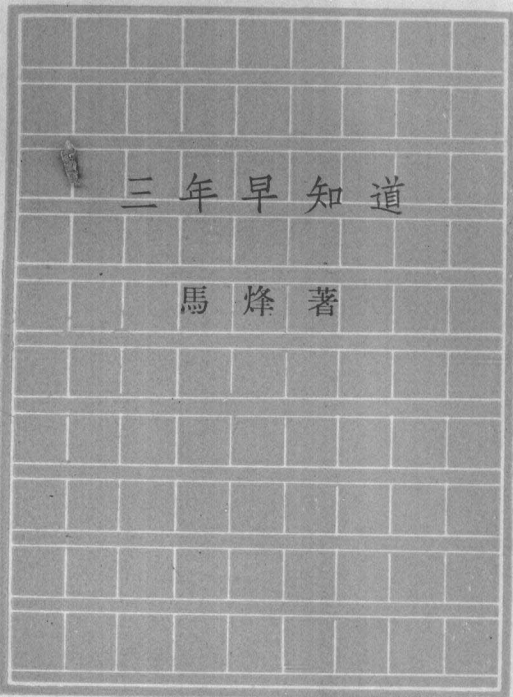 三年早知道
馬烽著